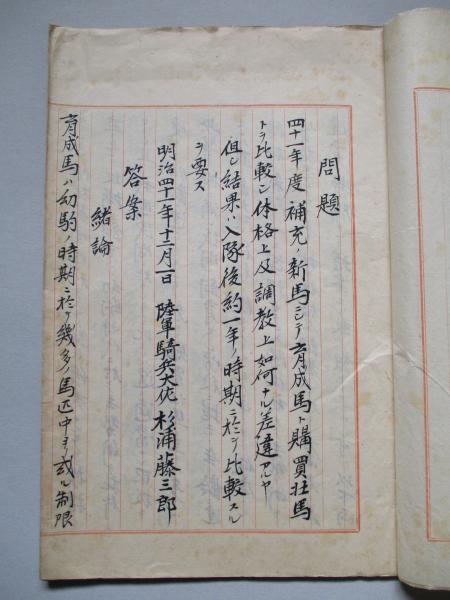 問題
四十一年度補充ノ新馬ニシテ育成馬ト購買壮馬
トヲ比較シ体格上及調教上如何ナル差違アルヤ
但シ結果ハ入隊後約一年ノ時期ニ於テ比較スル
ヲ要ス
明治四十一年十二月一日 陸軍騎兵大佐 杉浦藤三郎
答案
緒論
育成馬ハ幼駒ノ時期ニ於テ幾多ノ馬匹中ヨリ或ル制限